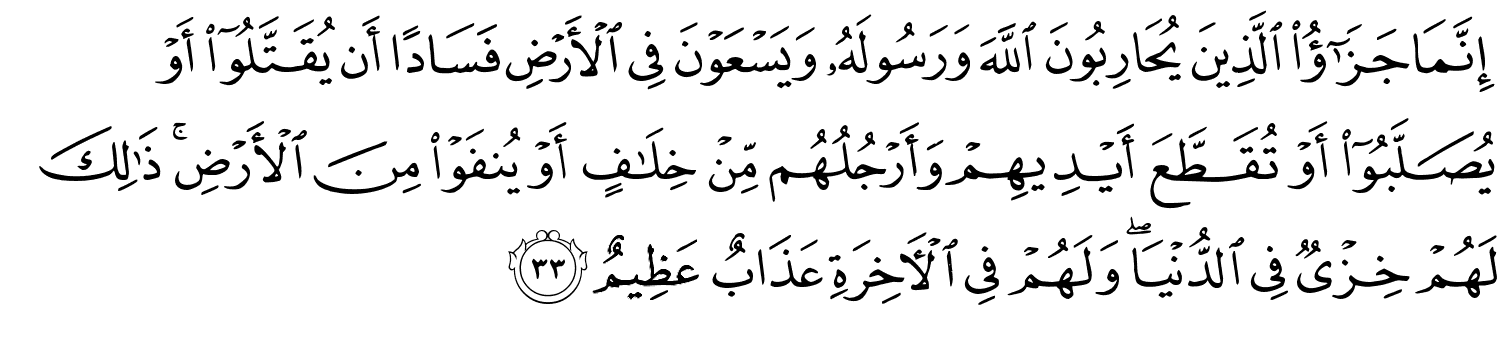 إِنَّمَا جَزَٰٓؤُا۟ ٱلَّذِينَ يُحَارِبُونَ ٱللَّهَ وَرَسُولَهُۥ وَيَسْعَوْنَ فِى ٱلْأَرْضِ فَسَادًا أَن يُقَتَّلُوٓا۟ أَوْ
يُصَلَّبُوٓا۟ أَوْ تُقَطَّعَ أَيْدِيهِمْ وَأَرْجُلُهُم مِّنْ خِلَـٰفٍ أَوْ يُنفَوْا۟ مِنَ ٱلْأَرْضِ ۚ ذَٰلِكَ
لَهُمْ خِزْىٌ فِى ٱلدُّنْيَا ۖ وَلَهُمْ فِى ٱلْـَٔاخِرَةِ عَذَابٌ عَظِيمٌ ٣٣